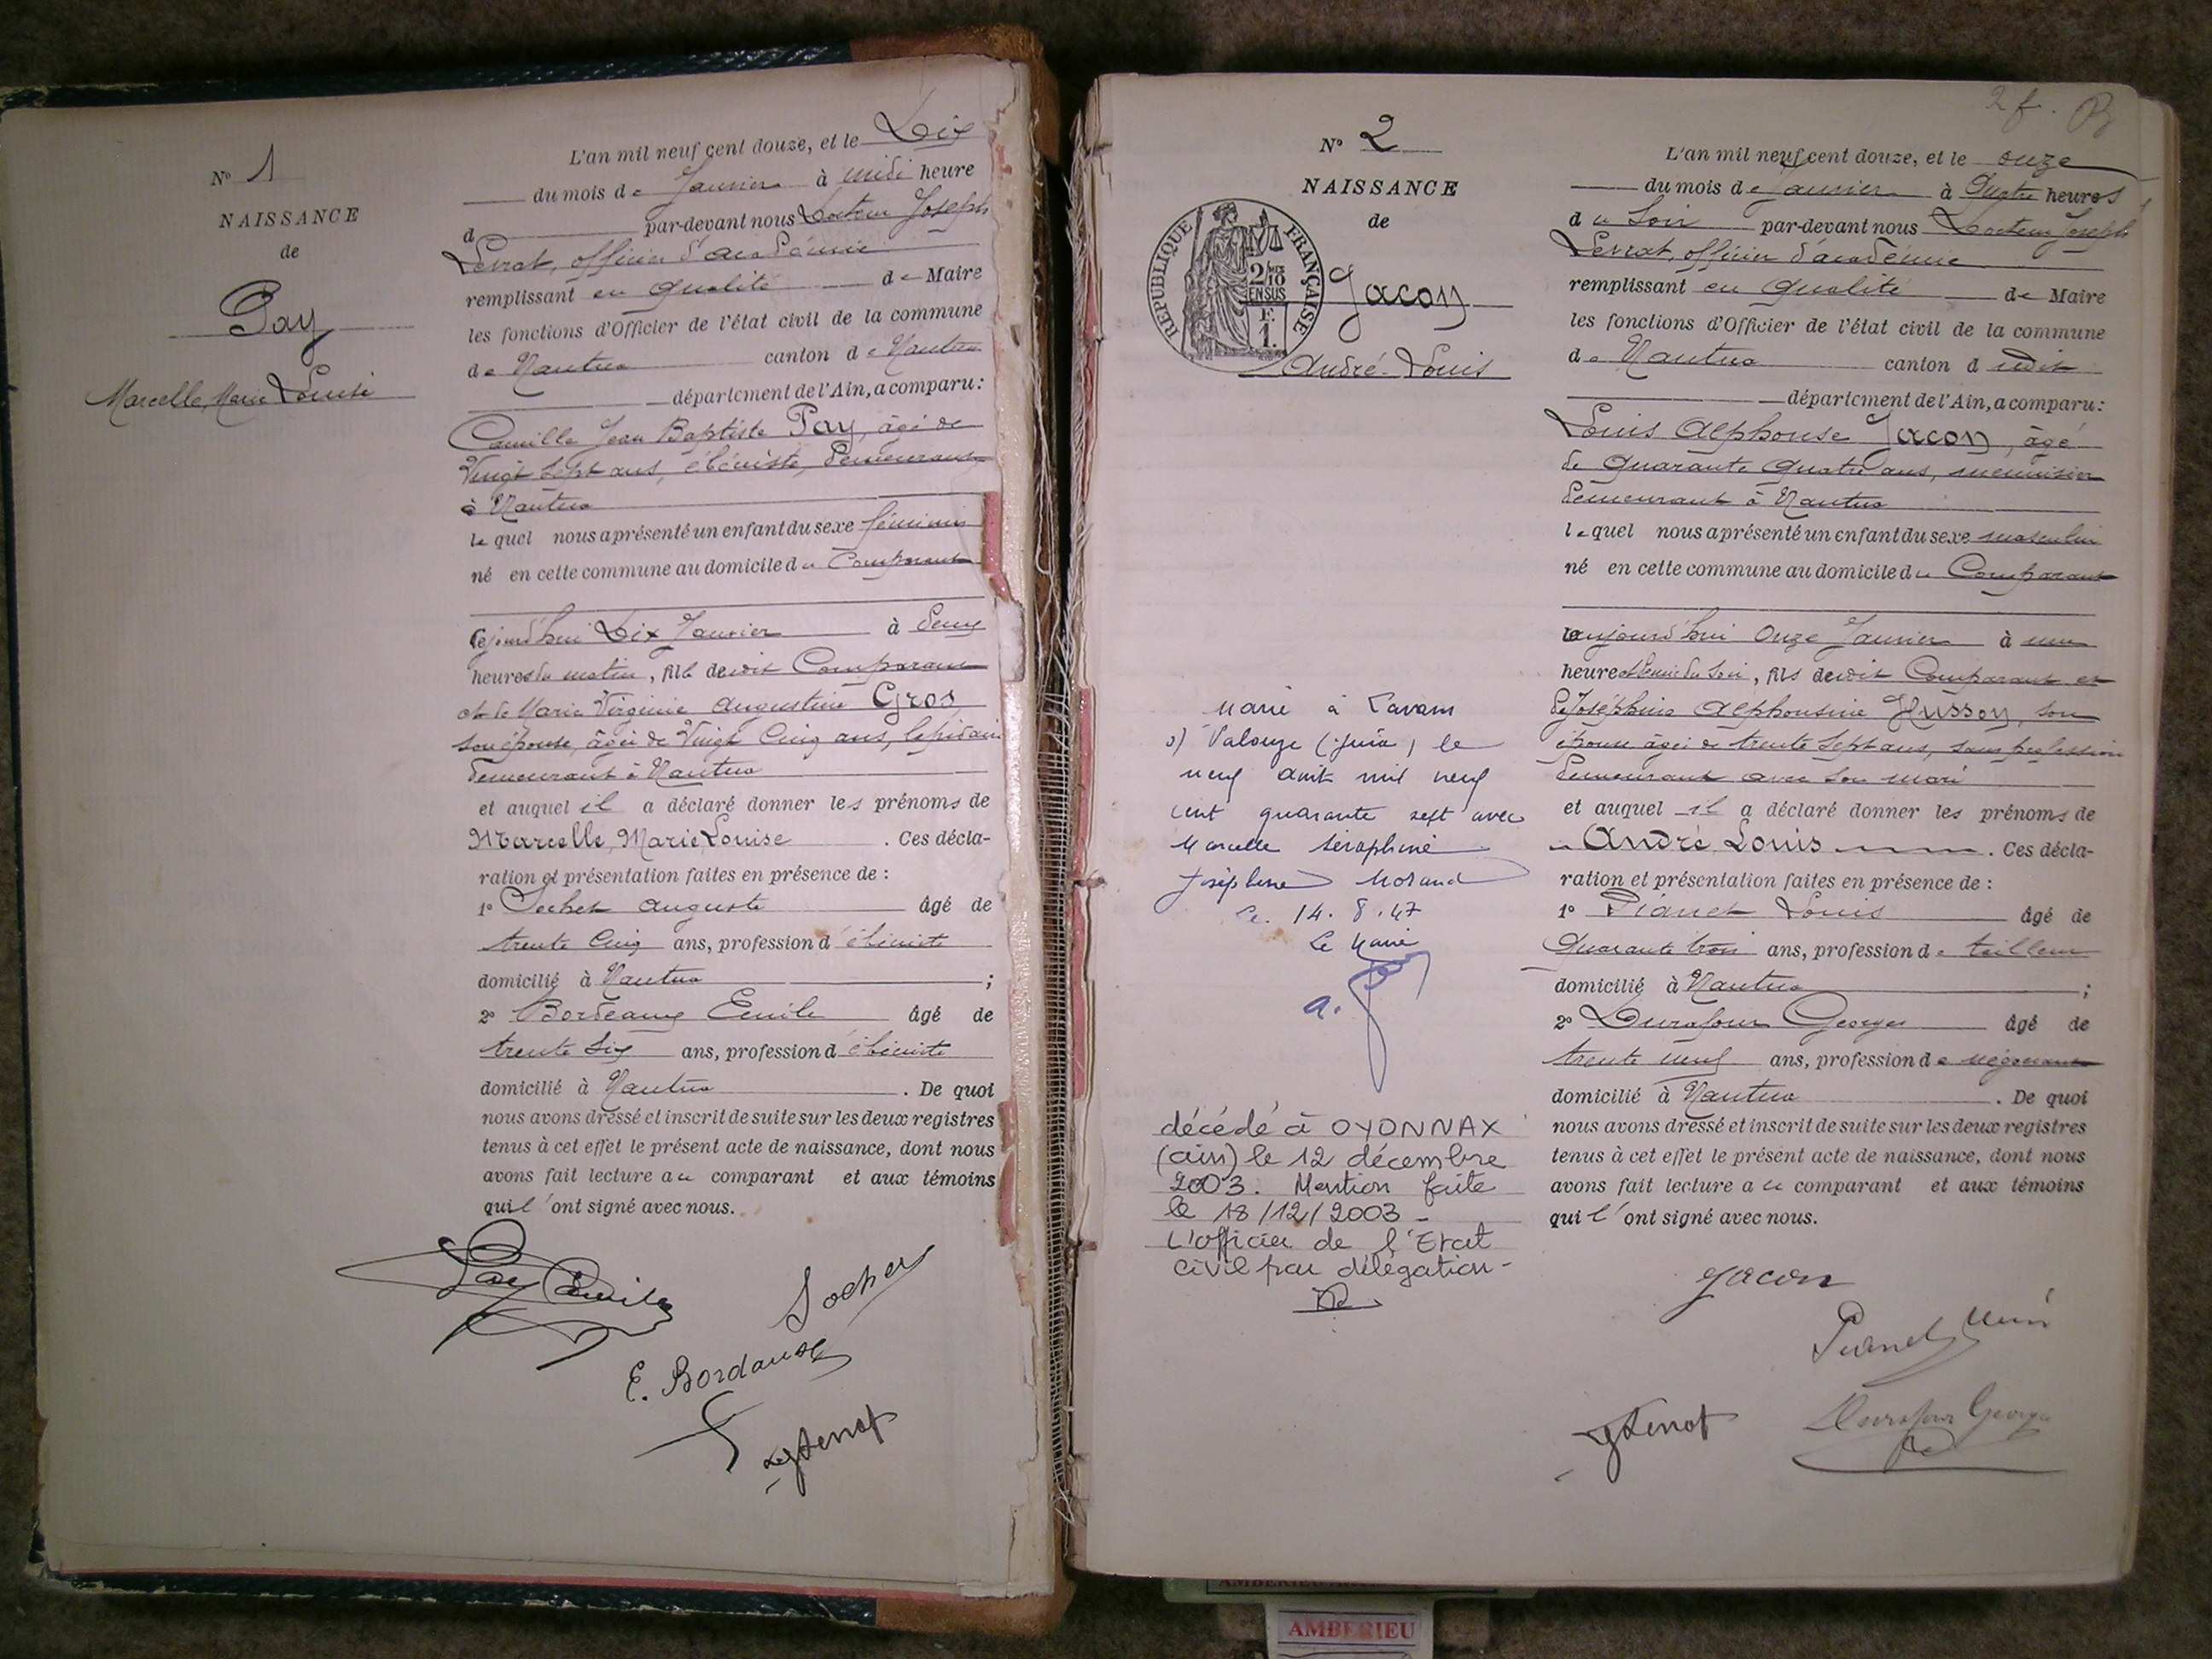 N° 1
NAISSANCE
de
Pay
Marcelle Marie Louise
L'an mil neuf cent douze, et le Dix
du mois de Janvier à midi heure
d par-devant nous Docteur Joseph
Levrat, officier d'académie
remplissant en qualité de Maire
les fonctions d'Officier de l'état civil de la commune
de Nantua canton de Nantua
département de l'Ain, a comparu:
Camille Jean Baptiste Pay, âgé de
Vingt Sept ans, ébéniste, demeurant
à Nantua
lequel nous a présenté un enfant du sexe féminin
né en cette commune au domicile du Comparant
cejourd'hui Dix Janvier à deux
heures du matin, fille dudit Comparant
et de Marie Virginie Augustine Gros,
son épouse, âgée de Vingt Cinq ans, lapidaire
demeurant à Nantua
et auquel il a déclaré donner les prénoms de
Marcelle, Marie, Louise. Ces décla-
ration et présentation faites en présence de :
1° Sochet Auguste âgé de
trente cinq ans, profession d'ébéniste
domicilié à Nantua ;
2° Bordeaux Emile âgé de
trente six ans, profession d'ébéniste
domicilié à Nantua. De quoi
nous avons dressé et inscrit de suite sur les deux registres
tenus à cet effet le présent acte de naissance, dont nous
avons fait lecture au comparant et aux témoins
qui l'ont signé avec nous.
Pay Camille
Sochet
E. Bordaux
2 f. B
N° 2
NAISSANCE
de
RÉPUBLIQUE FRANÇAISE
2/10
EN SUS
F.
1.
Jacon
André-Louis
L'an mil neuf cent douze, et le onze
du mois de Janvier à Quatre heures
du Soir par-devant nous Docteur Joseph
Levrat, officier d'académie
remplissant en qualité de Maire
les fonctions d'Officier de l'état civil de la commune
de Nantua canton dudit
département de l'Ain, a comparu:
Louis Alphonse Jacon, âgé
de Quarante Quatre ans, menuisier
demeurant à Nantua
lequel nous a présenté un enfant du sexe masculin
né en cette commune au domicile du Comparant
aujourd'hui Onze Janvier à une
heure et demie du soir, fils dudit Comparant et
de Joséphine Alphonsine Husson, son
épouse âgée de trente Sept ans, sans profession
demeurant avec son mari
et auquel il a déclaré donner les prénoms de
André Louis. Ces décla-
ration et présentation faites en présence de :
1° Pianet Louis âgé de
Quarante trois ans, profession de tailleur
domicilié à Nantua ;
2° Durafour Georges âgé de
trente neuf ans, profession de négociant
domicilié à Nantua. De quoi
nous avons dressé et inscrit de suite sur les deux registres
tenus à cet effet le présent acte de naissance, dont nous
avons fait lecture au comparant et aux témoins
qui l'ont signé avec nous.
Marié à Lavans
s) Valouze (Jura) le
neuf août mil neuf
cent quarante sept avec
Marcelle Séraphine
Joséphine Morand
Le. 14. 8. 47
Le Maire
décédé à OYONNAX
(ain) le 12 décembre
2003. Mention faite
le 18/12/2003 -
L'officier de l'Etat
civil par délégation -
Jacon
Pianet
Durafour Georges
AMBERIEU